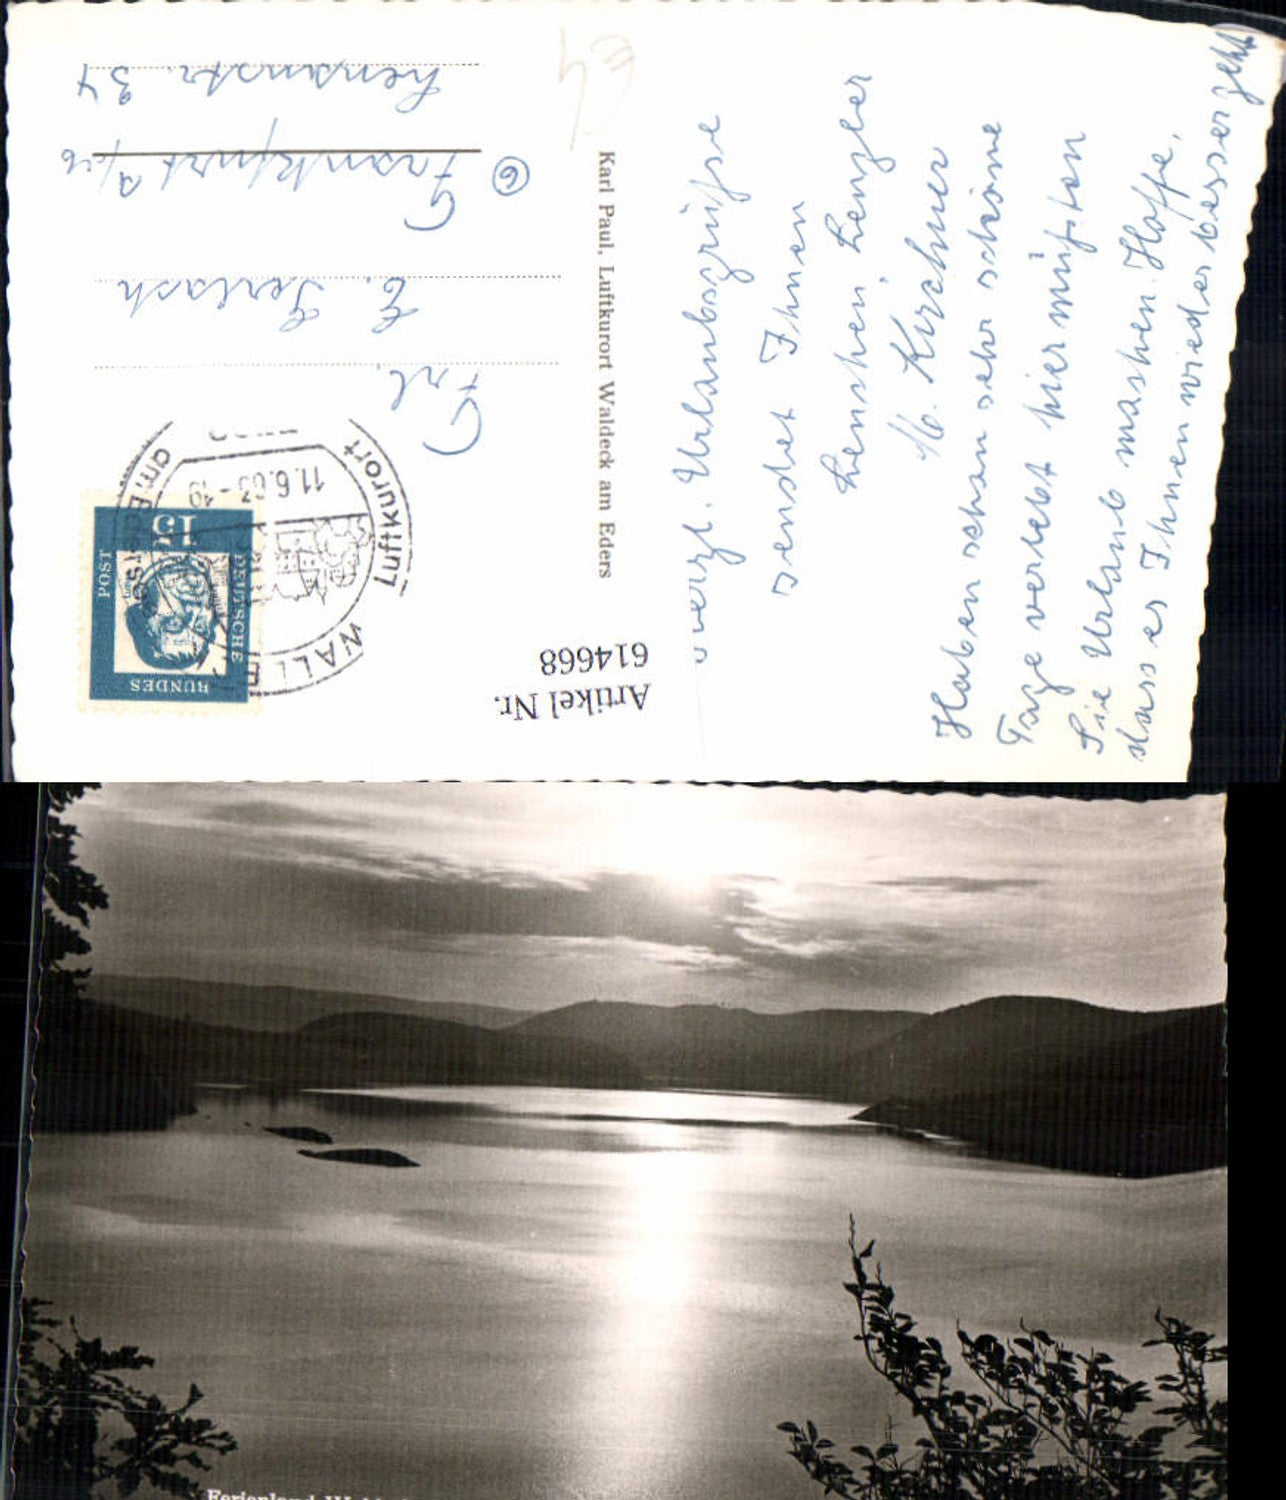 Frl.
E. Gerlach
⑥ Frankfurt a/
Lensanstr. 34
Karl Paul, Luftkurort Waldeck am Eders
Artikel Nr.
614668
DEUTSCHE
BUNDES
POST
15
Luftkurort
am Eders
11.6.63-19
herzl. Urlaubsgrüße
sendet Ihnen
Lenchen Lenzler
M. Kirchner
Haben schon sehr schöne
Tage verlebt hier müßten
Sie Urlaub machen. Hoffe,
dass es Ihnen wieder besser geht
Ferienland